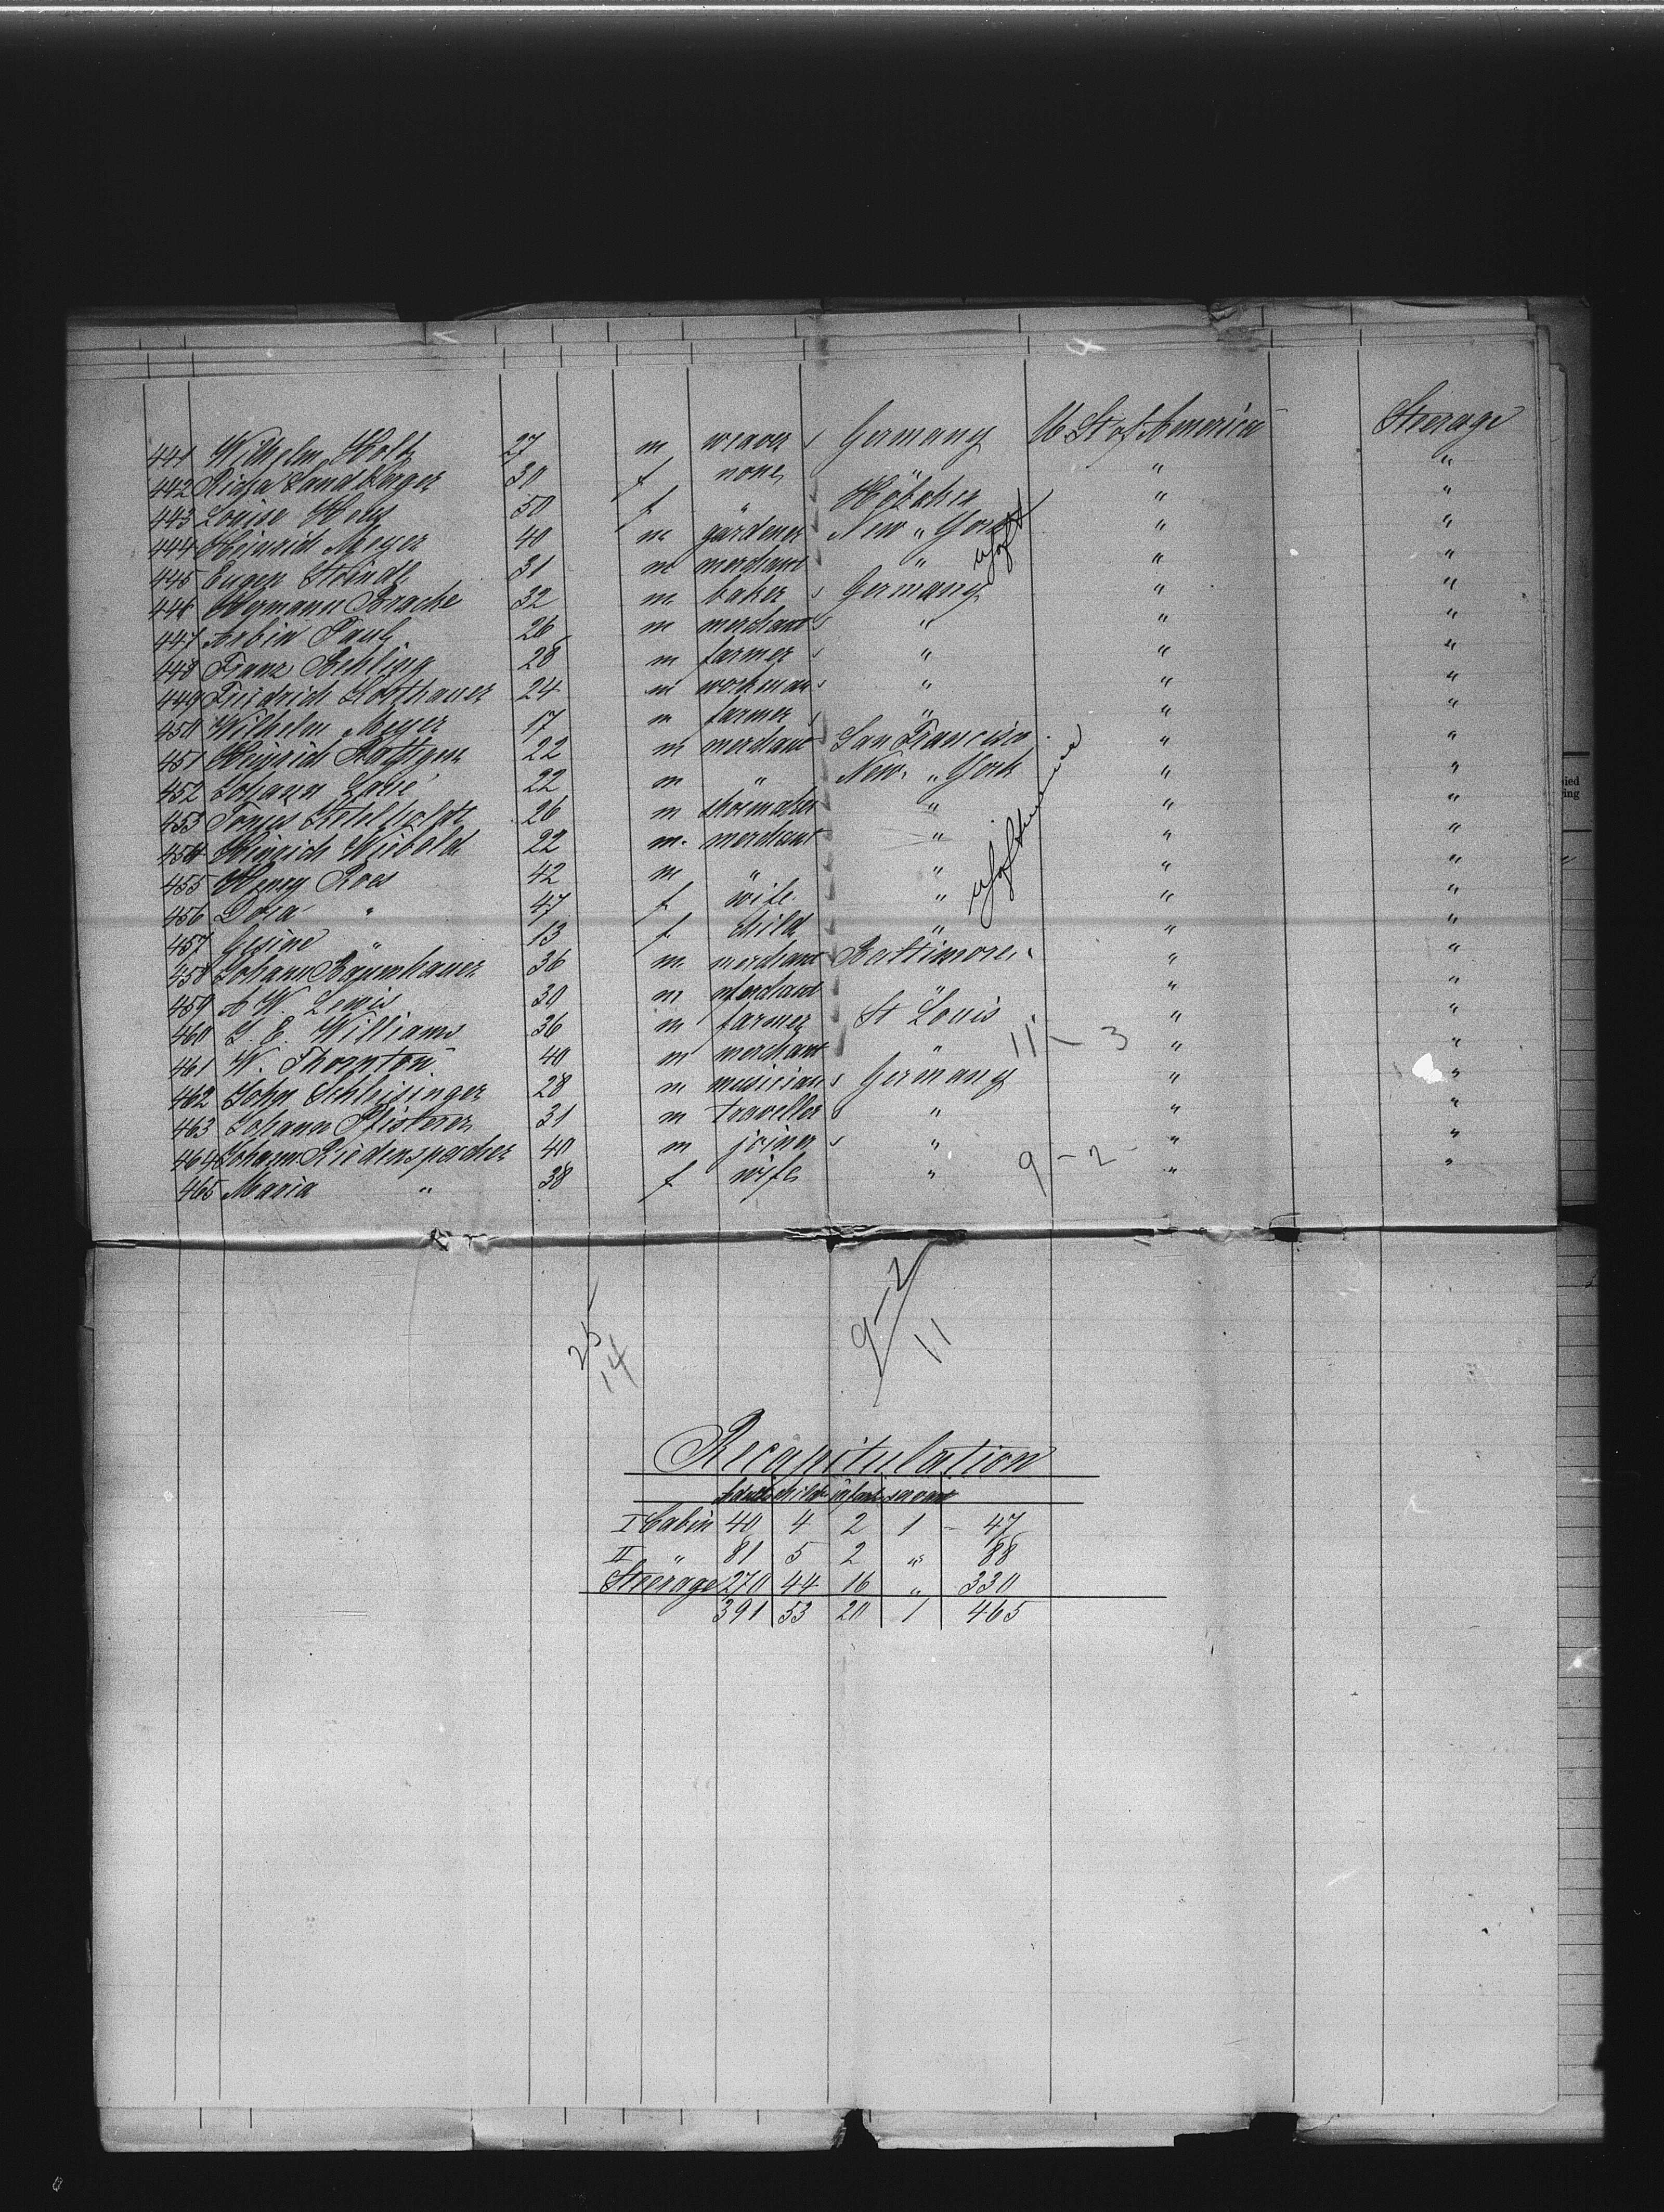 441 Wilhelm Holtz 27 m weaver s Germany U St of America Steerage
442 Ricka Landberger 30 f none " " "
443 Louise Heus 50 f " Hoboken " "
444 Heinrich Meyer 40 m gardener New York " "
445 Eugen 31 m merchant " " "
446 Hermann Brache 32 m baker s Germany " "
447 Paul 26 m merchant s " " "
448 Franz Rehling 28 m farmer s " " "
449 Friedrich Holthauer 24 m workman s " " "
450 Wilhelm Meyer 17 m farmer s " " "
451 Heinrich 22 m merchant San Francisco " "
452 Johann 22 m " New York " "
453 Tonjes 26 m shoemaker " " "
454 Hinrich Wiebold 22 m. merchant " " "
455 Henry Roes 42 m " " " "
456 Dora " 47 f wife " " "
457 Gesine " 13 f child " " "
458 Johann 36 m merchant Baltimore " "
459 A W. Lewis 30 m merchant " " "
460 E. Williams 36 m farmer St Louis " "
461 W. Thornton 40 m merchant " 11 - 3 " "
462 John Schleisinger 28 m musician s Germany " "
463 Johann Pfisterer 31 m traveller s " " "
464 Johann Riedenspacher 40 m joiner s " " "
465 Maria " 38 f wife " 9 - 2 - " "
9 - 2
25
14
11
Recapitulation
I Cabin 40 4 2 1 - 47
II " 81 5 2 " 88
Steerage 270 44 16 " 330
391 53 20 1 465